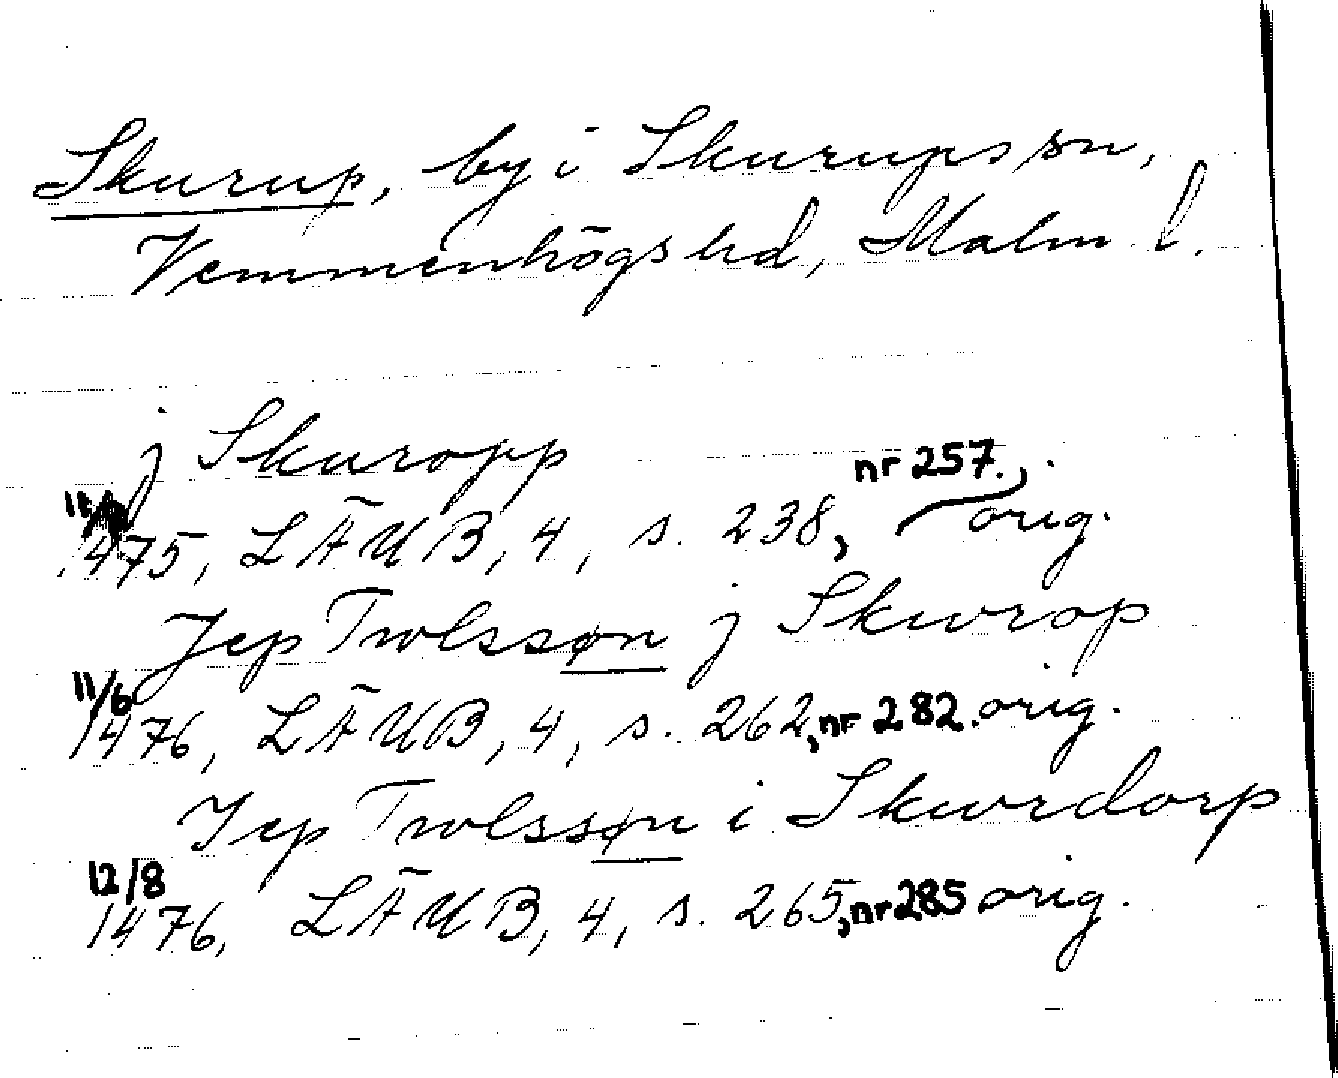 Skurup, by i Skurups sn,
Vemmenhögs hd, Malm l.
j Skuropp
nr 257.
1475, LÄUB, 4, s. 238, orig.
Jep Trwlssøn j Skwrop
11/6
1476, LÄUB, 4, s. 262, nr 282. orig.
Jep Trwlssøn i Skwrdorp
12/8
1476, LÄUB, 4, s. 265, nr 285 orig.